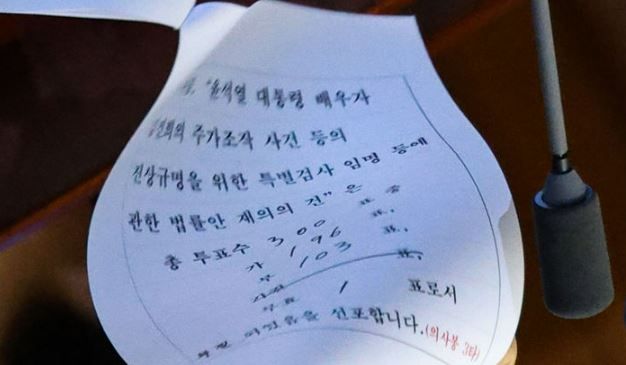 "윤석열 대통령 배우자
김건희의 주가조작 사건 등의
진상규명을 위한 특별검사 임명 등에
관한 법률안 재의의 건" 은
총 투표수 300 표 중
가 196 표,
부 103 표,
기권 표,
무효 1 표로서
부결 되었음을 선포합니다.(의사봉 3타)